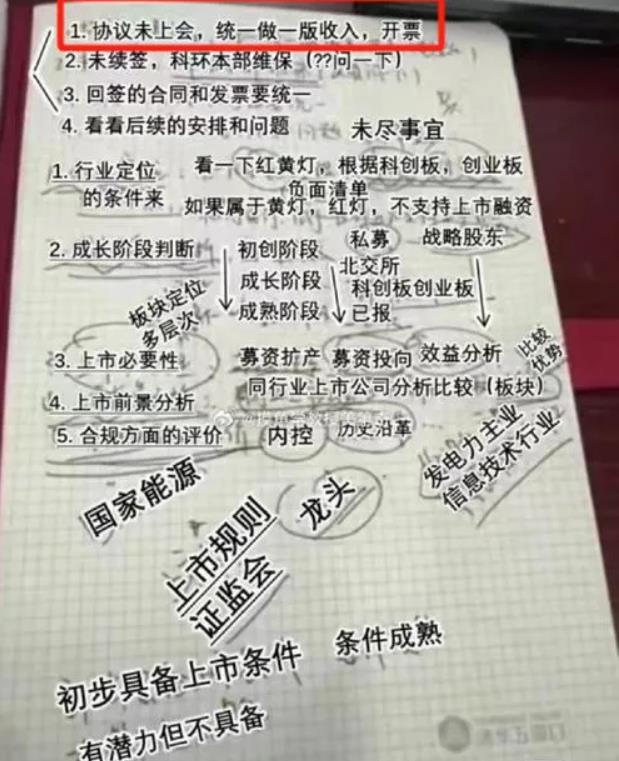 1. 协议未上会，统一做一版收入，开票
2. 未续签，科环本部维保（??问一下）
3. 回签的合同和发票要统一
4. 看看后续的安排和问题
未尽事宜
1. 行业定位的条件来
看一下红黄灯，根据科创板，创业板
负面清单
如果属于黄灯，红灯，不支持上市融资
2. 成长阶段判断
初创阶段
私募
战略股东
成长阶段
北交所
成熟阶段
科创板创业板
已报
板块定位
多层次
3. 上市必要性
募资扩产
募资投向
效益分析
比较
优势
同行业上市公司分析比较（板块）
4. 上市前景分析
5. 合规方面的评价
内控
历史沿革
发电力主业
信息技术行业
国家能源
龙头
上市规则
证监会
初步具备上市条件
条件成熟
有潜力但不具备